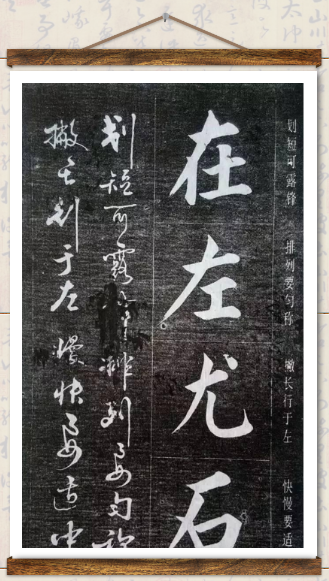 划短可露锋 排列要匀称 撇长行于左 快慢要适
在左尤石
划短可露锋排列要匀称
撇长行于左慢快要适中